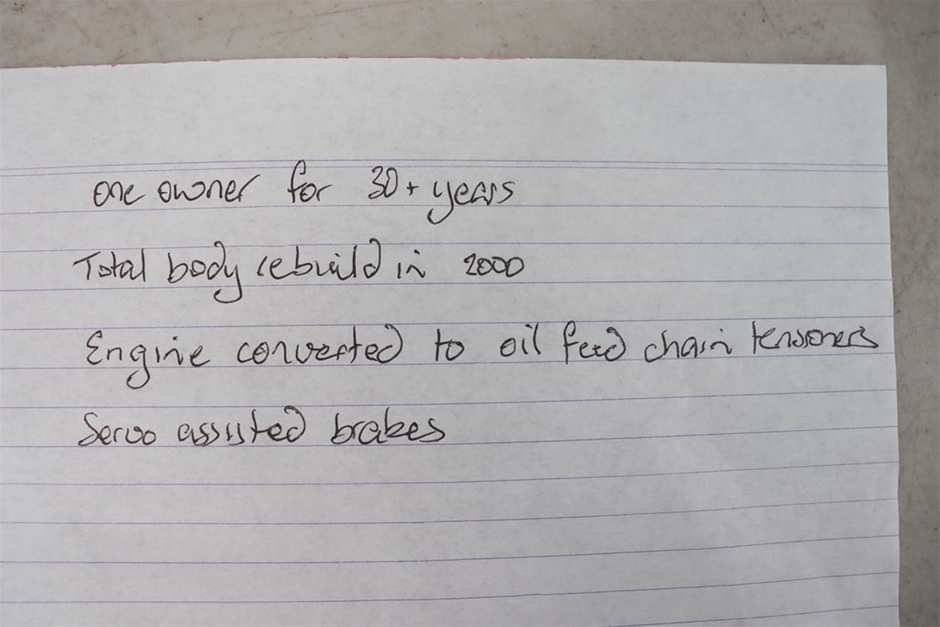 one owner for 30+ years
Total body rebuild in 2000
Engine converted to oil feed chain tensioners
Servo assisted brakes